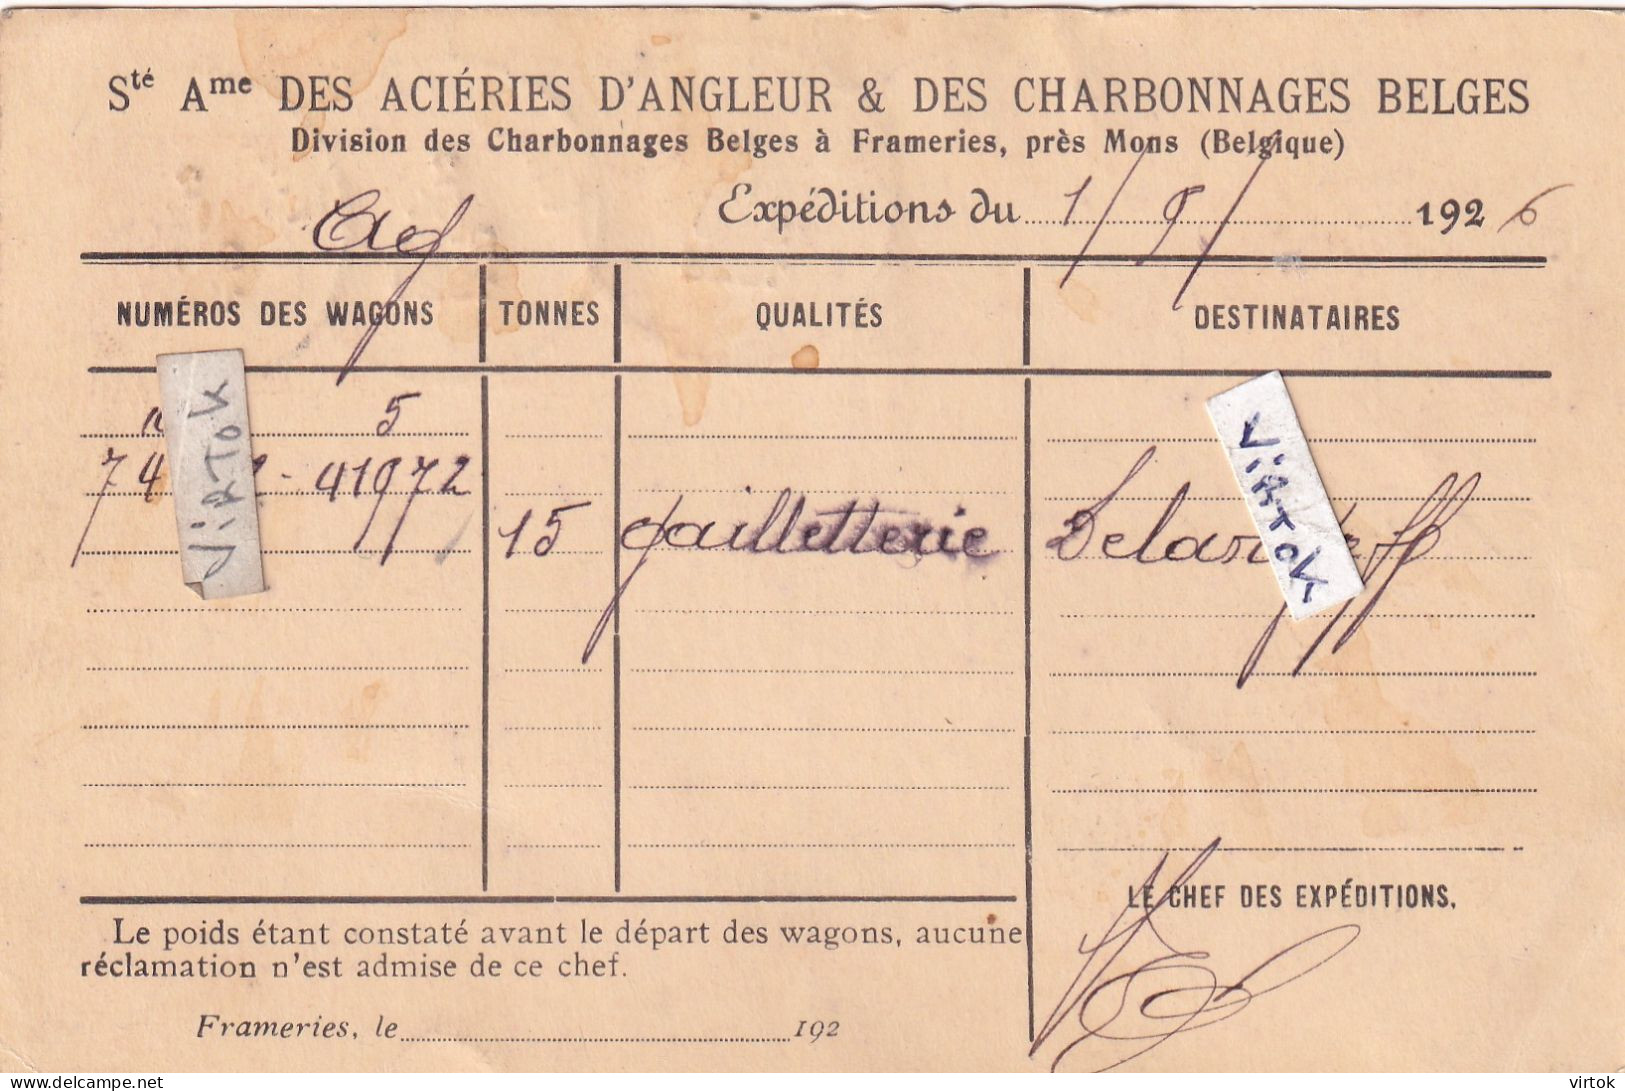 Sté Ame DES ACIÉRIES D'ANGLEUR & DES CHARBONNAGES BELGES
Division des Charbonnages Belges à Frameries, près Mons (Belgique)
Expéditions du 1/5/ 1926
NUMÉROS DES WAGONS TONNES QUALITÉS DESTINATAIRES
5
74 2 - 41972
15 gailletterie
ViRTOK
ViRTOK
LE CHEF DES EXPÉDITIONS.
Le poids étant constaté avant le départ des wagons, aucune
réclamation n'est admise de ce chef.
Frameries, le 192
delcampe.net
virtok